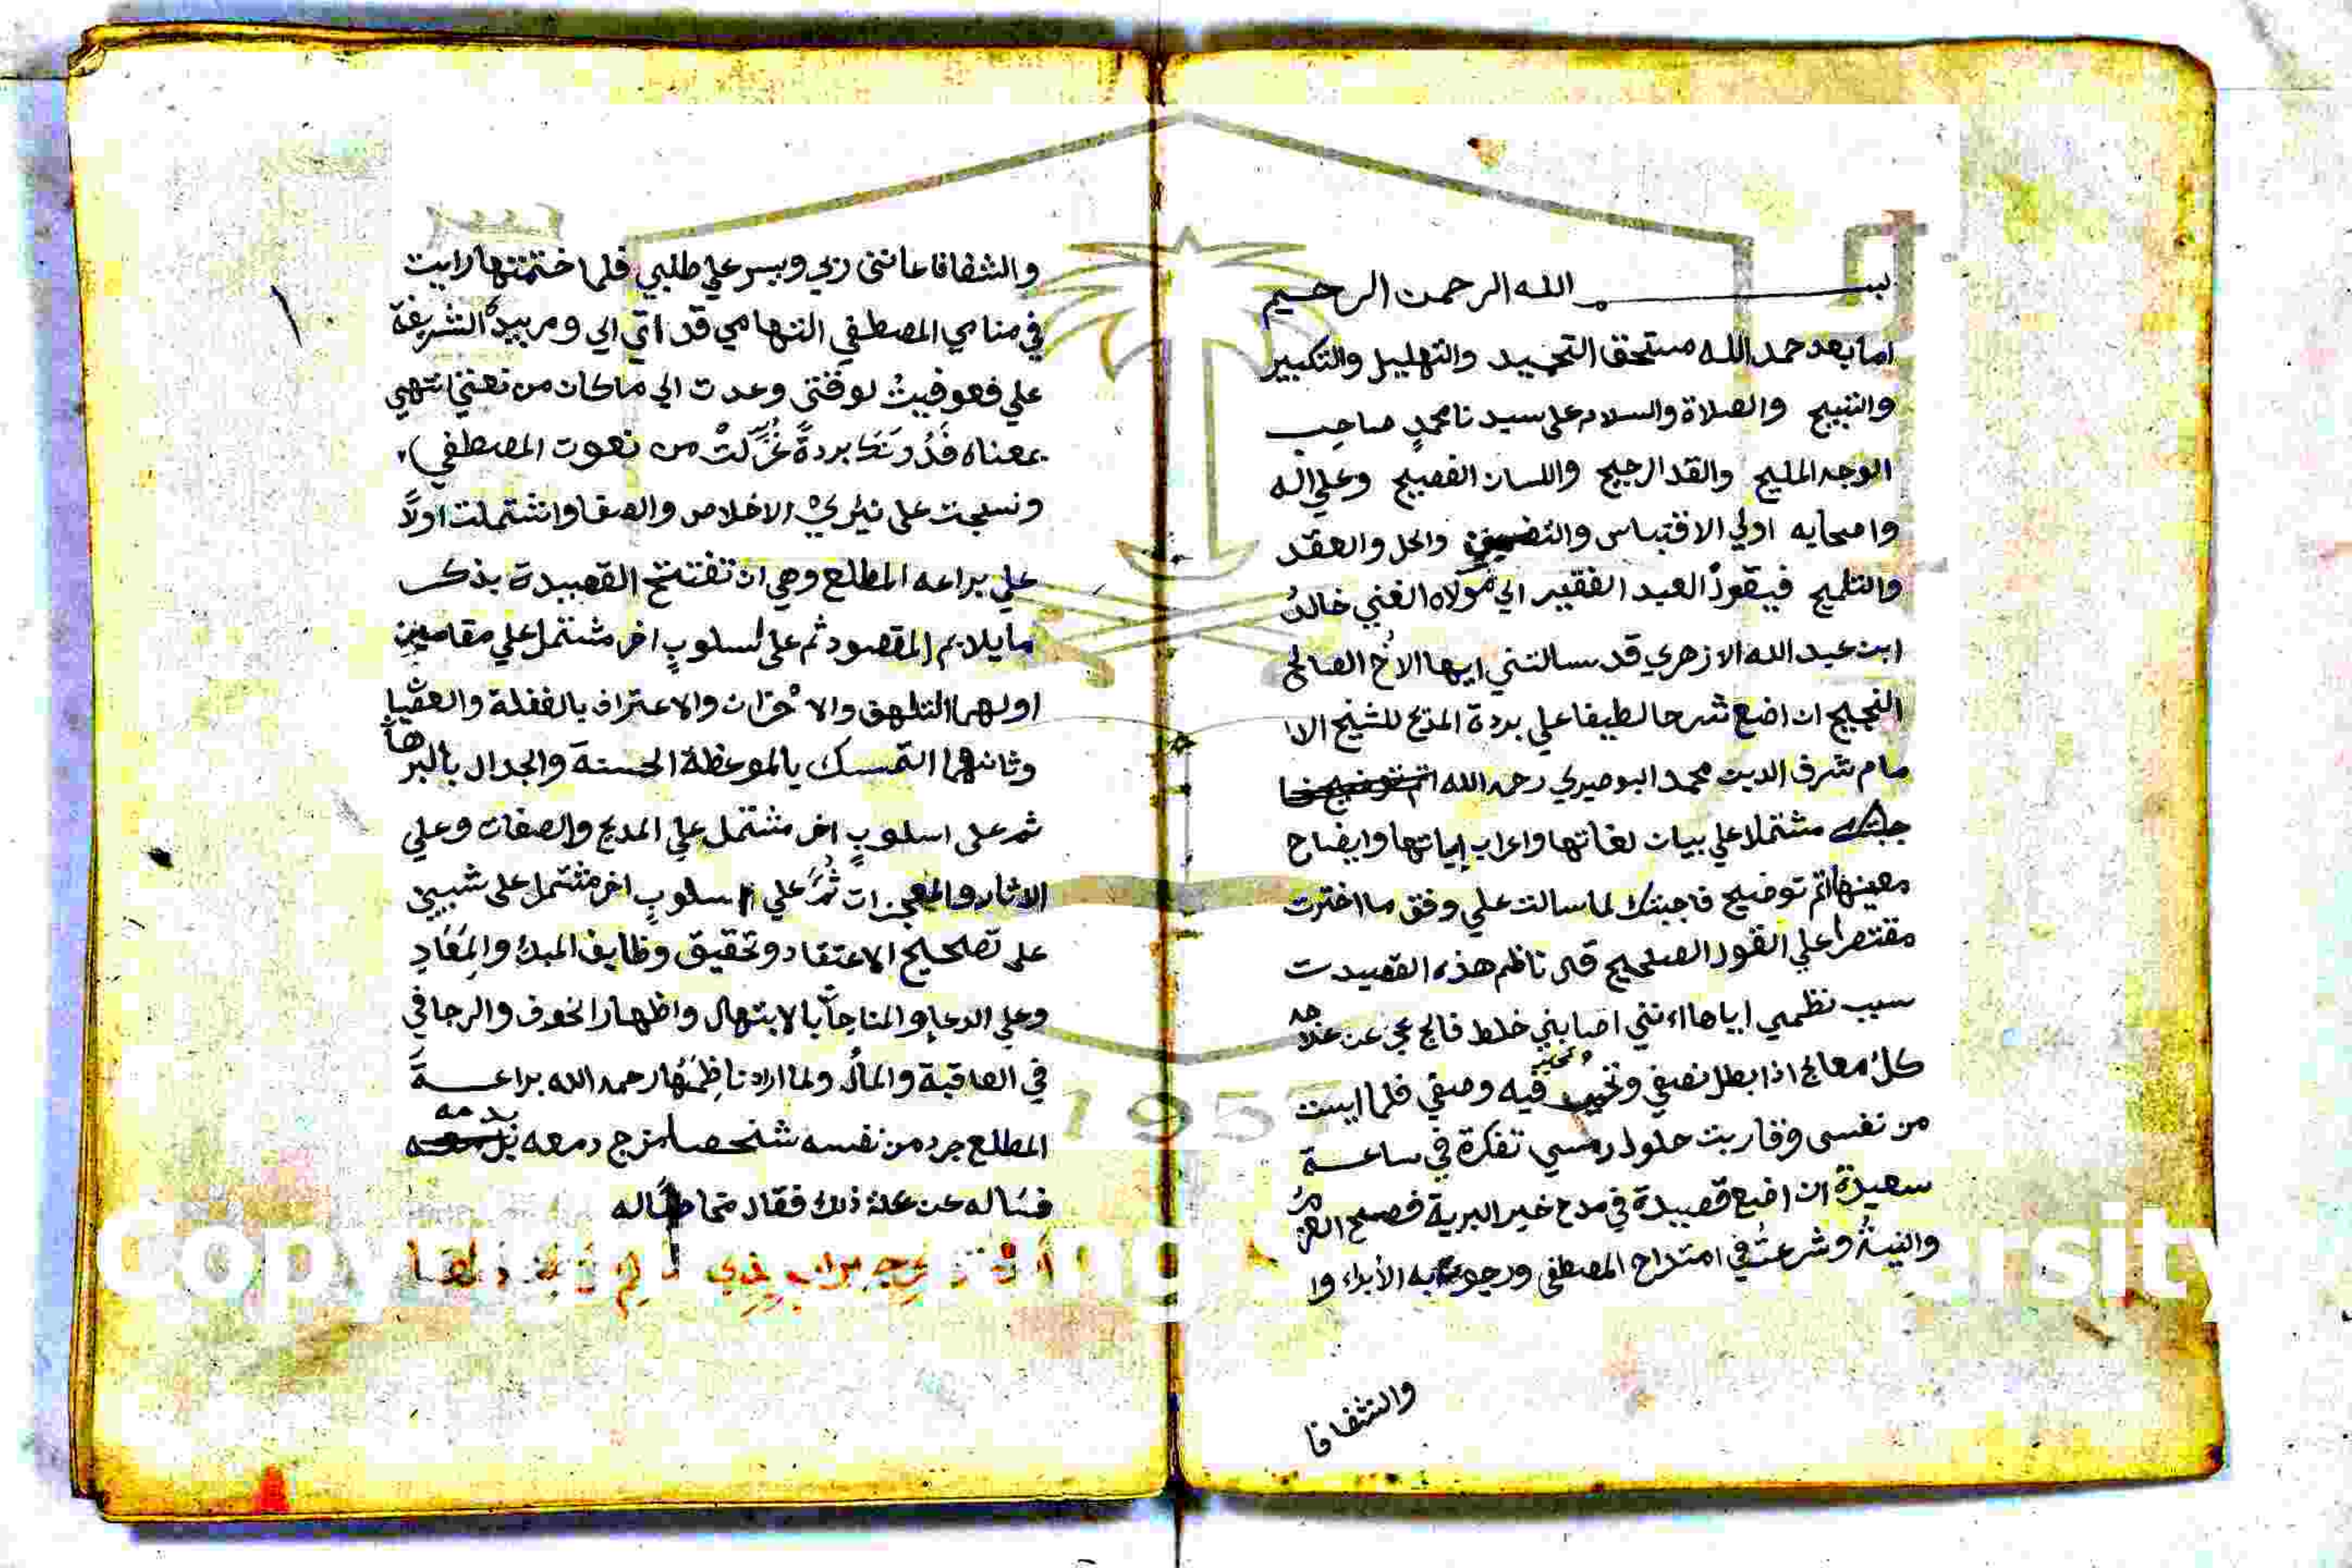 بسم الله الرحمن الرحيم
اما بعد حمد الله مستحق التحميد والتهليل والتكبير
والتسبيح والصلاة والسلام على سيدنا محمدٍ صاحب
الوجه المليح والقد الرجيح واللسان الفصيح وعلي اله
واصحابه اولي الاقتباس والتضمين والحل والعقد
والتلميح فيقول العبد الفقير الي مولاه الغني خالدُ
ابن عبد الله الازهري قد سالتني ايها الاخُ الصالح
النجيح ان اضع شرحا لطيفا علي بردة المديح للشيخ الا
مام شرف الدين محمد البوصيري رحمه الله
مشتملا علي بيان لغاتها واعراب ابياتها وايضاح
معينها اتم توضيح فاجبتك لما سالت علي وفق ما اخترت
مقتصرا علي القول الصحيح قال ناظم هذه القصيدت
سبب نظمي اياها اءنني اصابني خلط فالج عجي عن علاجه
كل معالج اذا بطل نصفي وتحير فيه وصفي فلما ايست
من نفسي وقاربت حلول رمسي تفكرة في ساعة
سعيدة ان اضع قصيدة في مدح خير البرية فصح العزمُ
والنيةُ وشرعتُ في امتداح المصطفي ورجوت به الأبراء وا
والشفافا
والشفافا عانني ربي ويسر علي طلبي فلما ختمتها رايت
في منامي المصطفي التهامي قد اتي الي ومر بيده الشريفة
علي فعوفيتُ لوقتي وعدت الي ما كان من نعتي انتهي
بمعناه بردةً غُزِلَتْ من نعوت المصطفي
ونسجت على نيري الاخلاص والصفا واشتملت اولاً
علي براعه المطلع وهي ان تفتتح القصيدة بذكر
ما يلايم المقصود ثم على اسلوبٍ اخر مشتمل علي مقامين
اولهما التلهف والاحزان والاعتراف بالغفلة والعصيا
وثانهما التمسك بالموعظة الحسنة والجدال بالبرها
ثم على اسلوبٍ اخر مشتمل علي المديح والصفات وعلي
الاثار والمعجزات ثُمَّ علي اسلوبٍ اخر مشتمل على شيين
على تصحيح الاعتقاد وتحقيق وظايف المبدا والمَعَادِ
وعلي الدعا والمناجاَّ بالابتهال واظهار الخوف والرجا في
في العاقبة والمأل ولما اراد ناظِمُهَا رحمه الله براعةَ
المطلع جرد من نفسه شخصا مزج دمعه بدمه
فساله عن علة ذلك فقال مخاطبا له